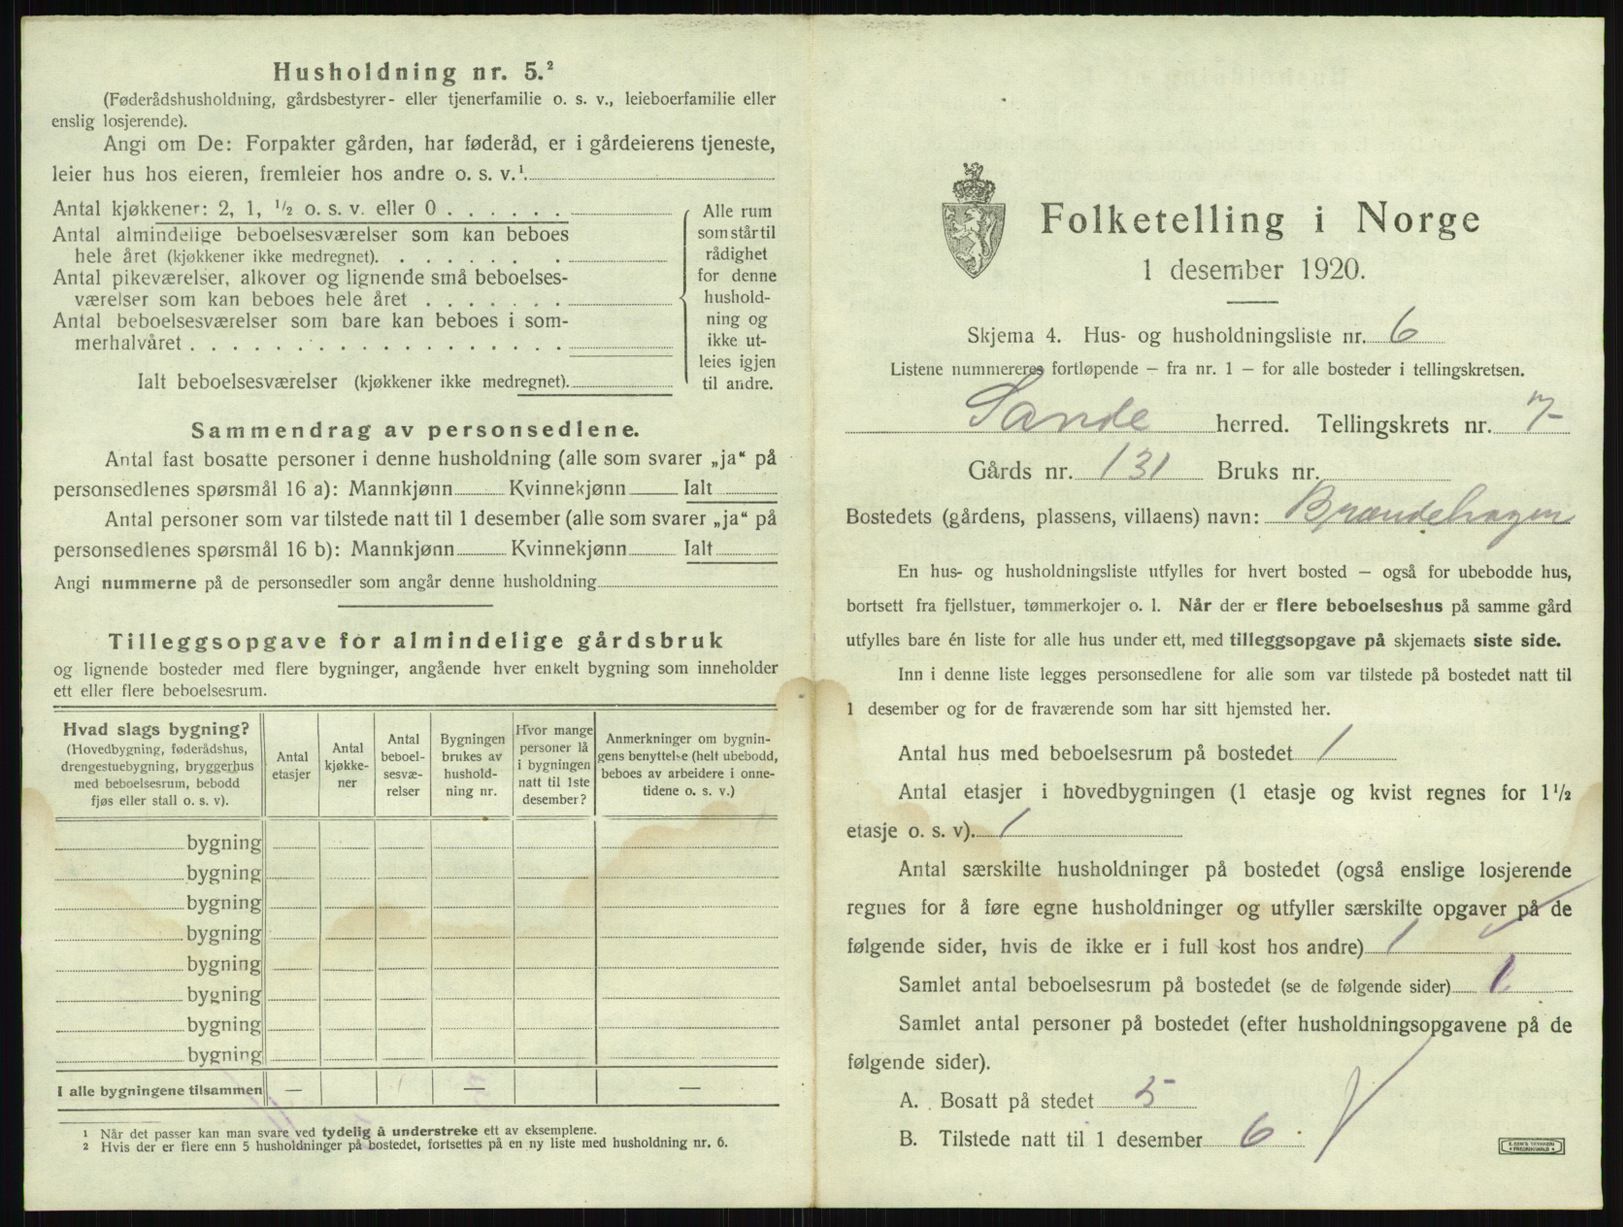 Husholdning nr. 5.²
(Føderådshusholdning, gårdsbestyrer- eller tjenerfamilie o. s. v., leieboerfamilie eller
enslig losjerende).
Angi om De: Forpakter gården, har føderåd, er i gårdeierens tjeneste,
leier hus hos eieren, fremleier hos andre o. s. v.¹.
Antal kjøkkener: 2, 1, ¹/₂ o. s. v. eller 0 . . . . . .
Antal almindelige beboelsesværelser som kan beboes
hele året (kjøkkener ikke medregnet). . . . . . . .
Antal pikeværelser, alkover og lignende små beboelses-
værelser som kan beboes hele året . . . . . . .
Antal beboelsesværelser som bare kan beboes i som-
merhalvåret . . . . . . . . . . . . . . . . . .
Ialt beboelsesværelser (kjøkkener ikke medregnet).
Alle rum
som står til
rådighet
for denne
hushold-
ning og
ikke ut-
leies igjen
til andre.
Sammendrag av personsedlene.
Antal fast bosatte personer i denne husholdning (alle som svarer „ja“ på
personsedlenes spørsmål 16 a): Mannkjønn Kvinnekjønn Ialt
Antal personer som var tilstede natt til 1 desember (alle som svarer „ja“ på
personsedlenes spørsmål 16 b): Mannkjønn Kvinnekjønn Ialt
Angi nummerne på de personsedler som angår denne husholdning
Tilleggsopgave for almindelige gårdsbruk
og lignende bosteder med flere bygninger, angående hver enkelt bygning som inneholder
ett eller flere beboelsesrum.
Hvad slags bygning?
(Hovedbygning, føderådshus,
drengestuebygning, bryggerhus
med beboelsesrum, bebodd
fjøs eller stall o. s. v).
Antal
etasjer
Antal
kjøkke-
ner
Antal
beboel-
sesvæ-
relser
Bygningen
brukes av
hushold-
ning nr.
Hvor mange
personer lå
i bygningen
natt til 1ste
desember?
Anmerkninger om bygnin-
gens benyttelse (helt ubebodd,
beboes av arbeidere i onne-
tidene o. s. v.)
bygning
bygning
bygning
bygning
bygning
bygning
bygning
bygning
I alle bygningene tilsammen — — —
¹ Når det passer kan man svare ved tydelig å understreke ett av eksemplene.
² Hvis der er flere enn 5 husholdninger på bostedet, fortsettes på en ny liste med husholdning nr. 6.
Folketelling i Norge
1 desember 1920.
Skjema 4. Hus- og husholdningsliste nr. 6
Listene nummereres fortløpende — fra nr. 1 — for alle bosteder i tellingskretsen.
Sande herred. Tellingskrets nr. 7
Gårds nr. 131 Bruks nr.
Bostedets (gårdens, plassens, villaens) navn: Brændehagen
En hus- og husholdningsliste utfylles for hvert bosted — også for ubebodde hus,
bortsett fra fjellstuer, tømmerkojer o. l. Når der er flere beboelseshus på samme gård
utfylles bare én liste for alle hus under ett, med tilleggsopgave på skjemaets siste side.
Inn i denne liste legges personsedlene for alle som var tilstede på bostedet natt til
1 desember og for de fraværende som har sitt hjemsted her.
Antal hus med beboelsesrum på bostedet 1
Antal etasjer i hovedbygningen (1 etasje og kvist regnes for 1¹/₂
etasje o. s. v). 1
Antal særskilte husholdninger på bostedet (også enslige losjerende
regnes for å føre egne husholdninger og utfyller særskilte opgaver på de
følgende sider, hvis de ikke er i full kost hos andre) 1
Samlet antal beboelsesrum på bostedet (se de følgende sider) 1
Samlet antal personer på bostedet (efter husholdningsopgavene på de
følgende sider).
A. Bosatt på stedet 5
B. Tilstede natt til 1 desember 6